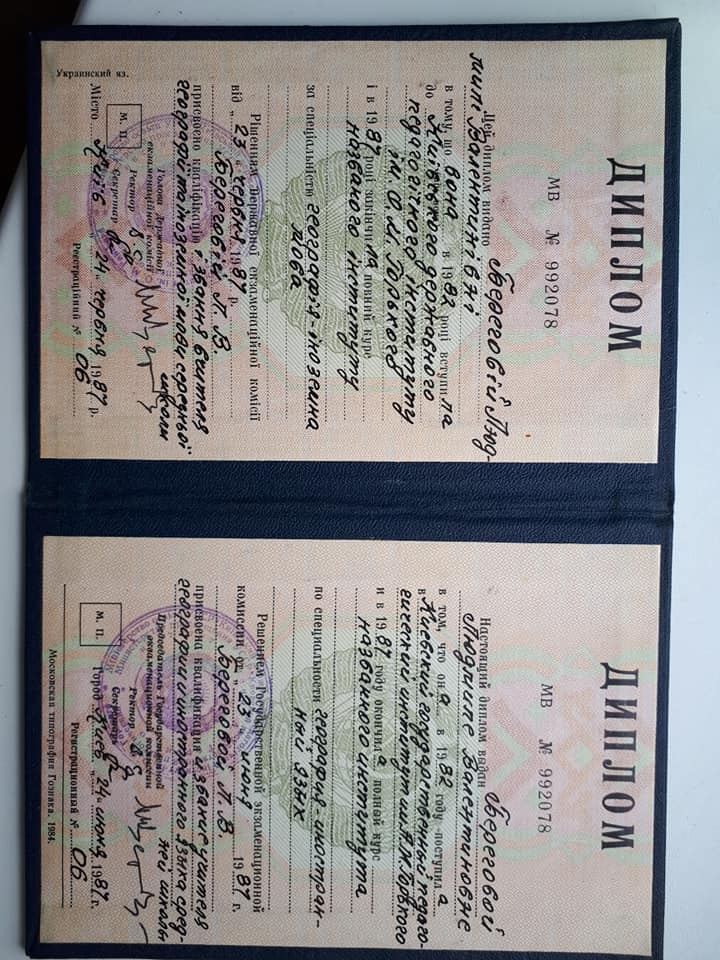 Украинский яз.
ДИПЛОМ
МВ № 992078
Цей диплом видано Береговій Люд-
милі Валентинівні
в тому, що вона в 1982 році вступила
до Київського державного
педагогічного інституту
ім. О. М. Горького
і в 1987 році закінчила повний курс
названого інституту
за спеціальністю географія-іноземна
мова
Рішенням Державної екзаменаційної комісії
від „23“ червня 1987 р.
Береговій Л. В.
присвоєно кваліфікацію і звання вчителя
географії та іноземної мови середньої
школи
Голова Державної
екзаменаційної комісії
Ректор
Секретар
М. П.
Місто Київ „24“ червня 1987 р.
Реєстраційний № 06
ДИПЛОМ
МВ № 992078
Настоящий диплом выдан Береговой
Людмиле Валентиновне
в том, что она в 1982 году поступила
в Киевский государственный педаго-
гический институт им. А. М. Горького
и в 1987 году окончила полный курс
названного института
по специальности география-иностран-
ный язык
Решением Государственной экзаменационной
комиссии от „23“ июня 1987 г.
Береговой Л. В.
присвоена квалификация и звание учителя
географии и иностранного языка сред-
ней школы
Председатель Государственной
экзаменационной комиссии
Ректор
Секретарь
М. П.
Город Киев „24“ июня 1987 г.
Регистрационный № 06
Московская типография Гознака. 1984.